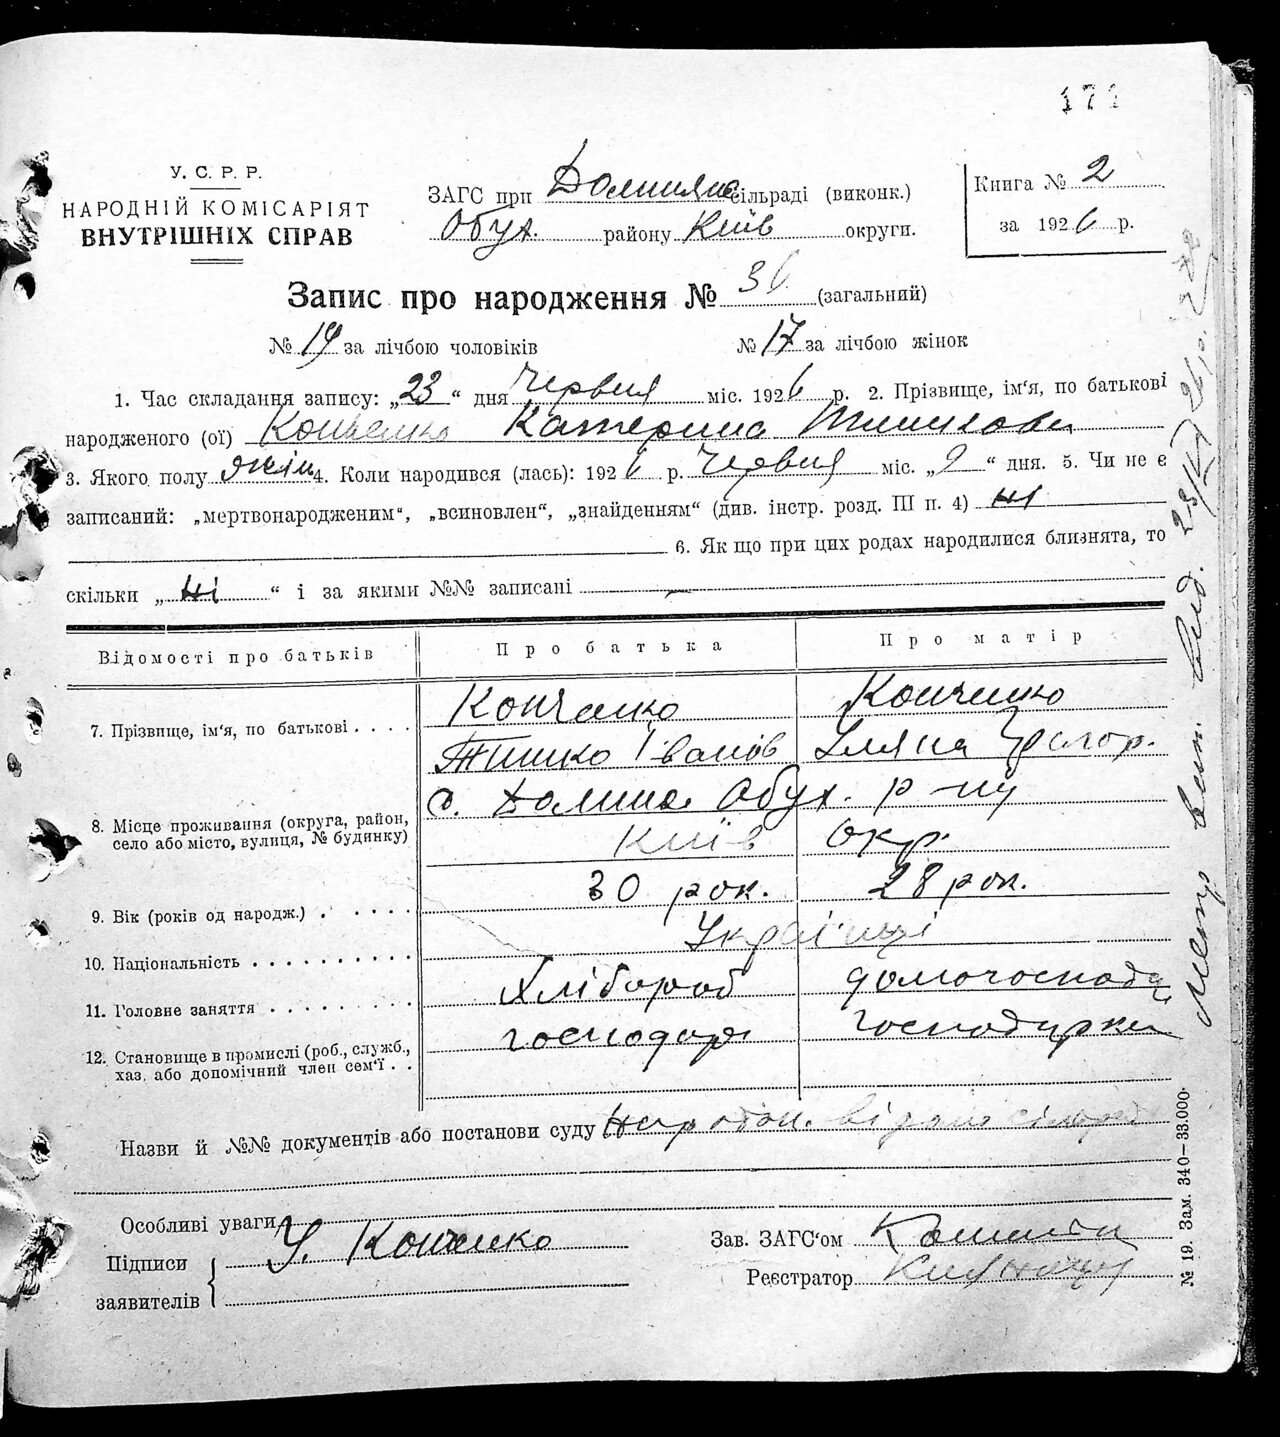 171
У. С. Р. Р.
НАРОДНІЙ КОМІСАРІЯТ
ВНУТРІШНІХ СПРАВ
ЗАГС при Долинян сільраді (виконк.)
Обух. району Київ округи.
Книга № 2
за 1926 р.
Запис про народження № 36 (загальний)
№ 19 за лічбою чоловіків № 17 за лічбою жінок
1. Час складання запису: „23“ дня Червня міс. 1926 р. 2. Прізвище, ім‘я, по батькові
народженого (ої) Конченко Катерина Тимкова
3. Якого полу жін 4. Коли народився (лась): 1926 р. Червня міс. „9“ дня. 5. Чи не є
записаний: „мертвонародженим“, „всиновлен“, „знайденням“ (див. інстр. розд. III п. 4) ні
6. Як що при цих родах народилися близнята, то
скільки „ні“ і за якими №№ записані —
Відомості про батьків Про батька Про матір
7. Прізвище, ім‘я, по батькові . . . . Конченко Конченко
Тимко Іванів Уляна Григор.
с. Долина Обух. р-ну
8. Місце проживання (округа, район,
село або місто, вулиця, № будинку) Київ окр.
9. Вік (років од народж.) . . . . . 30 рок. 28 рок.
10. Національність . . . . . . . . . . Українці
11. Головне заняття . . . . . . . . Хлібороб домогоспода
12. Становище в промислі (роб., служб.,
хаз. або допомічний член сем‘ї . . господар господарка
Назви й №№ документів або постанови суду
Особливі уваги
Підписи
заявителів У. Конченко
Зав. ЗАГС‘ом
Реєстратор
№ 19. Зам. 340—33.000.
Метр вит. вид.